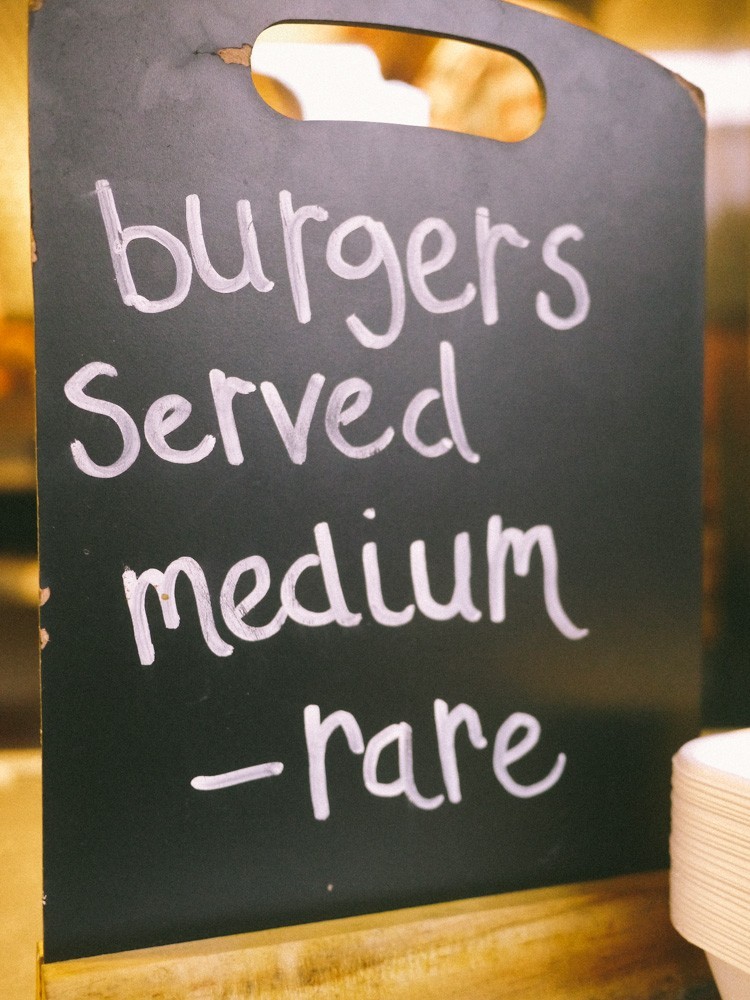 burgers
Served
medium
-rare